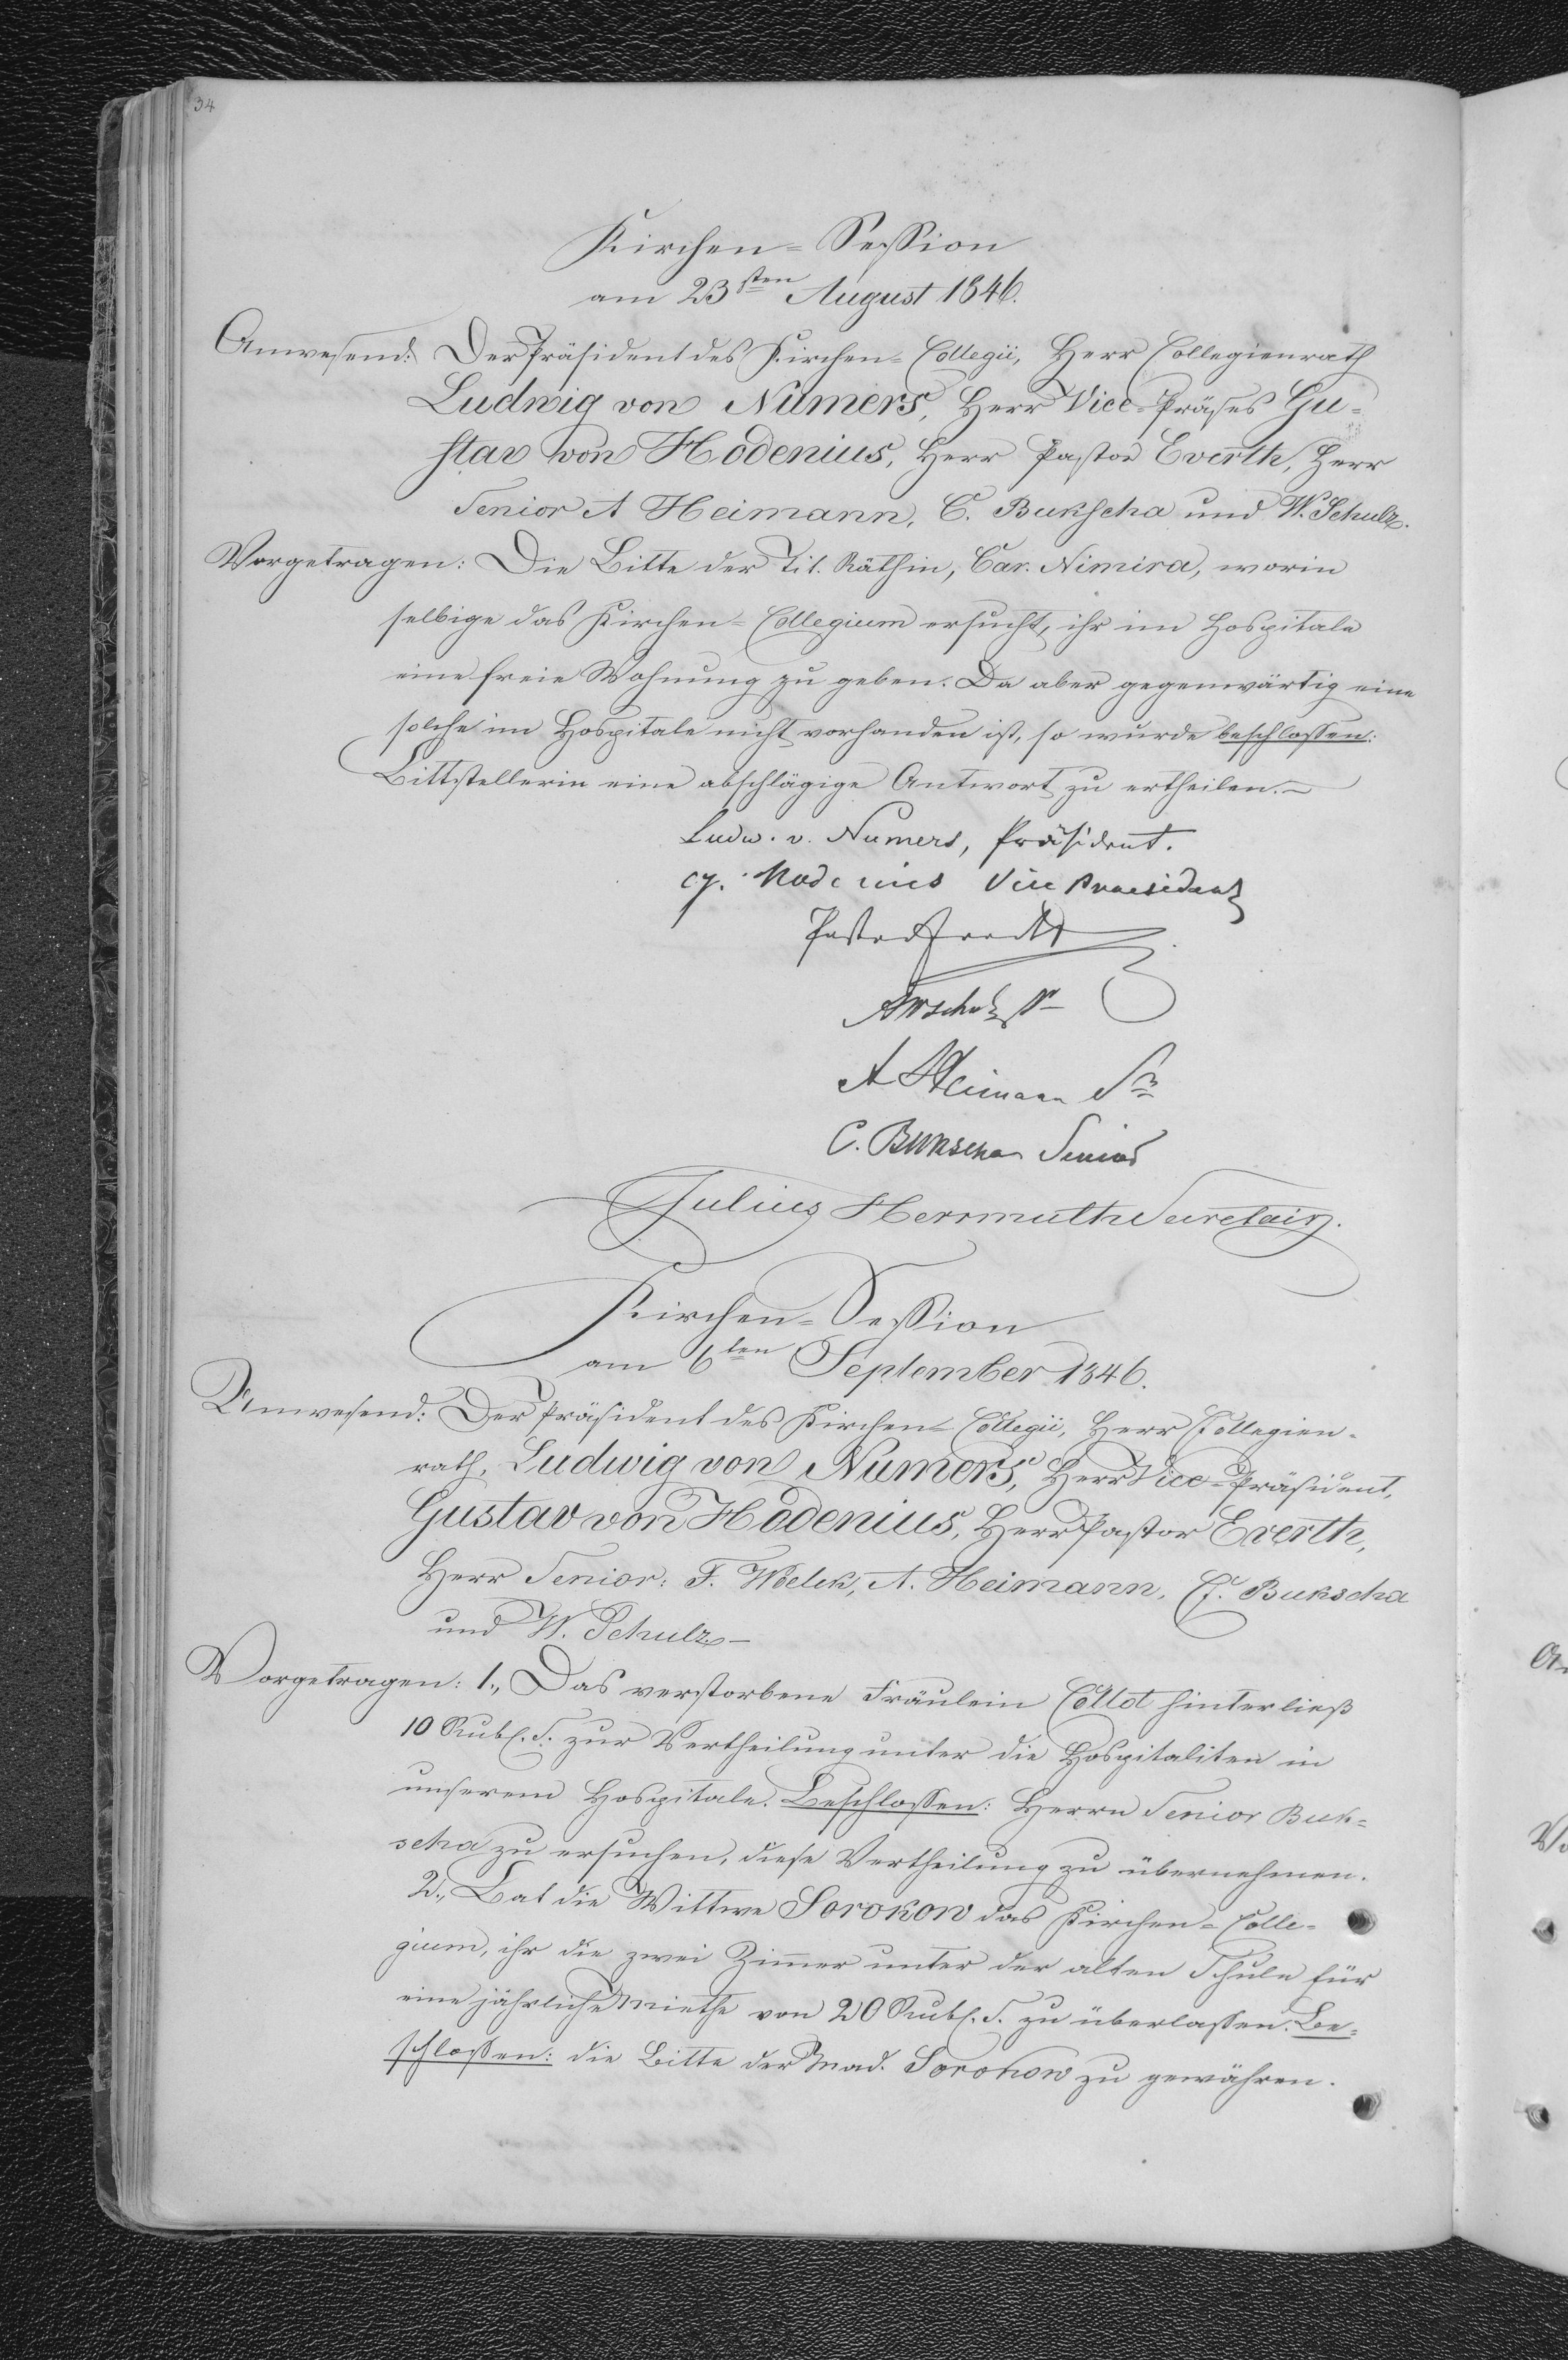 34
Kirchen=Session
am 23sten August 1846.
Anwesend: Der Präsident des Kirchen=Collegii, Herr Collegienrath
Ludwig von Numers, Herr Vice=Präses Gu=
stav von Hödenius, Herr Pastor Everth, Herr
Senior A Heimann, C. Bukscha und W. Schulz.
Vorgetragen: Die Bitte der Tit. Räthin, Car. Nimira, worin
selbige das Kirchen=Collegium ersucht, ihr im Hospitale
eine freie Wohnung zu geben. Da aber gegenwärtig eine
solche im Hospitale nicht vorhanden ist, so wurde beschlossen:
Bittstellerin eine abschlägige Antwort zu ertheilen.–
Ludw. v. Numers, Präsident.
G. Hödenius Vice Praesident
Pastor Everth
AWSchulz Sr
A Heimann Sr
C. Bukscha Senior
Julius Herrmuth Secretair.
Kirchen=Session
am 6ten September 1846.
Anwesend: Der Präsident des Kirchen=Collegii, Herr Collegien=
rath, Ludwig von Numers, Herr Vice=Präsident,
Gustav von Hödenius, Herr Pastor Everth,
Herr Senior: F. Woelck, A. Heimann, C. Bukscha
und W. Schulz.–
Vorgetragen: 1., Das verstorbene Fräulein Collot hinterließ
10 Rubl. S. zur Vertheilung unter die Hospitaliten in
unserem Hospitale. Beschlossen: Herrn Senior Buk=
scha zu ersuchen, diese Vertheilung zu übernehmen.
2., Bat die Wittwe Sorokow das Kirchen=Colle=
gium, ihr die zwei Zimmer unter der alten Schule für
eine jährliche Miethe von 20 Rubl. S. zu überlassen. Be=
schlossen: die Bitte der Mad. Sorokow zu gewähren.